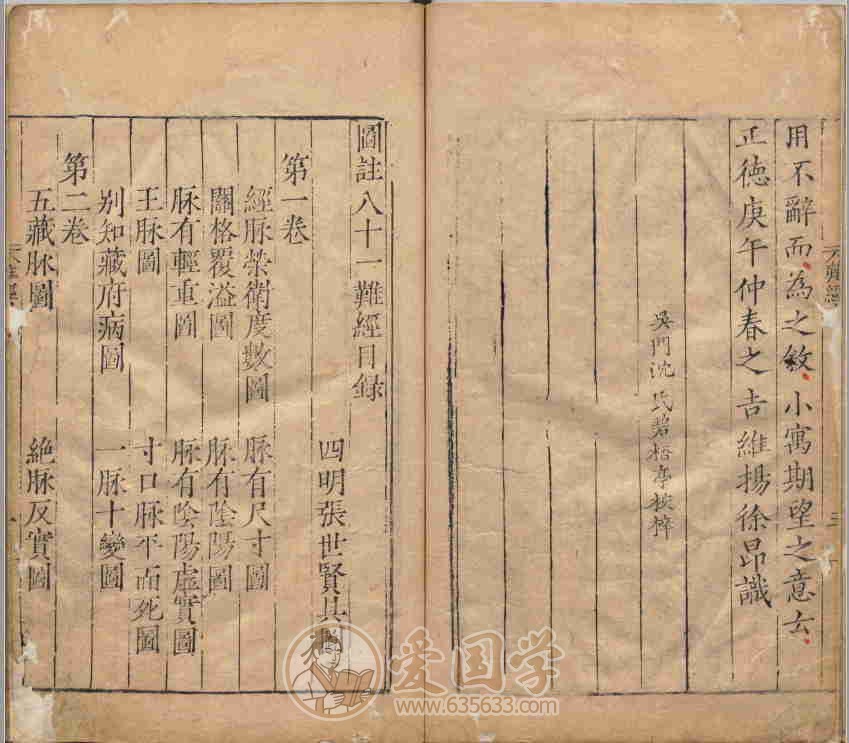 用不辭而為之敘小寓期望之意云
正德庚午仲春之吉維揚徐昂識
吳門沈氏碧梧亭校梓
圖註八十一難經目錄
四明張世賢其
第一卷
經脉榮衛度數圖 脉有尺寸圖
關格覆溢圖 脉有陰陽圖
脉有輕重圖 脉有陰陽虛實圖
王脉圖 寸口脉平而死圖
別知藏府病圖 一脉十變圖
第二卷
五藏脉圖 絕脉反實圖
爱国学
www.635633.com